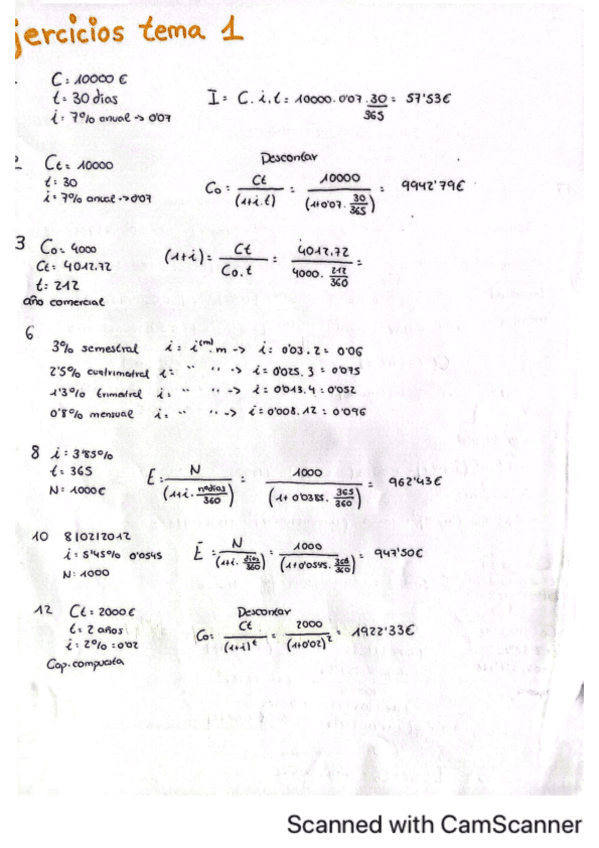 jercicios tema 1
C = 10000 €
t = 30 dias
i = 7% anual -> 0'07
I = C. i. t = 10000. 0'07. 30/365 = 57'53€
2 Ct = 10000
t = 30
i = 7% anual -> 0'07
Descontar
Co = Ct/(1+i.t) = 10000/(1+0'07. 30/365) = 9942'79€
3 Co = 4000
Ct = 4012.72
t = 212
año comercial
(1+i) = Ct/Co.t = 4012.72/4000. 212/360 =
6
3% semestral i = i(m).m -> i = 0'03. 2 = 0'06
2'5% cuatrimestral i = " " -> i = 0'025. 3 = 0'075
1'3% trimestral i = " " -> i = 0'013. 4 = 0'052
0'8% mensual i = " " -> i = 0'008. 12 = 0'096
8 i = 3'85%
t = 365
N = 1000€
E = N/(1+i. nºdias/360) = 1000/(1+0'0385. 365/360) = 962'43€
10 8/02/2012
i = 5'45% 0'0545
N = 1000
E = N/(1+i. dias/360) = 1000/(1+0'0545. /360) = 947'50€
12 Ct = 2000€
t = 2 años
i = 2% = 0'02
Cap. compuesta
Descontar
Co = Ct/(1+i)t = 2000/(1+0'02)2 = 1922'33€
Scanned with CamScanner